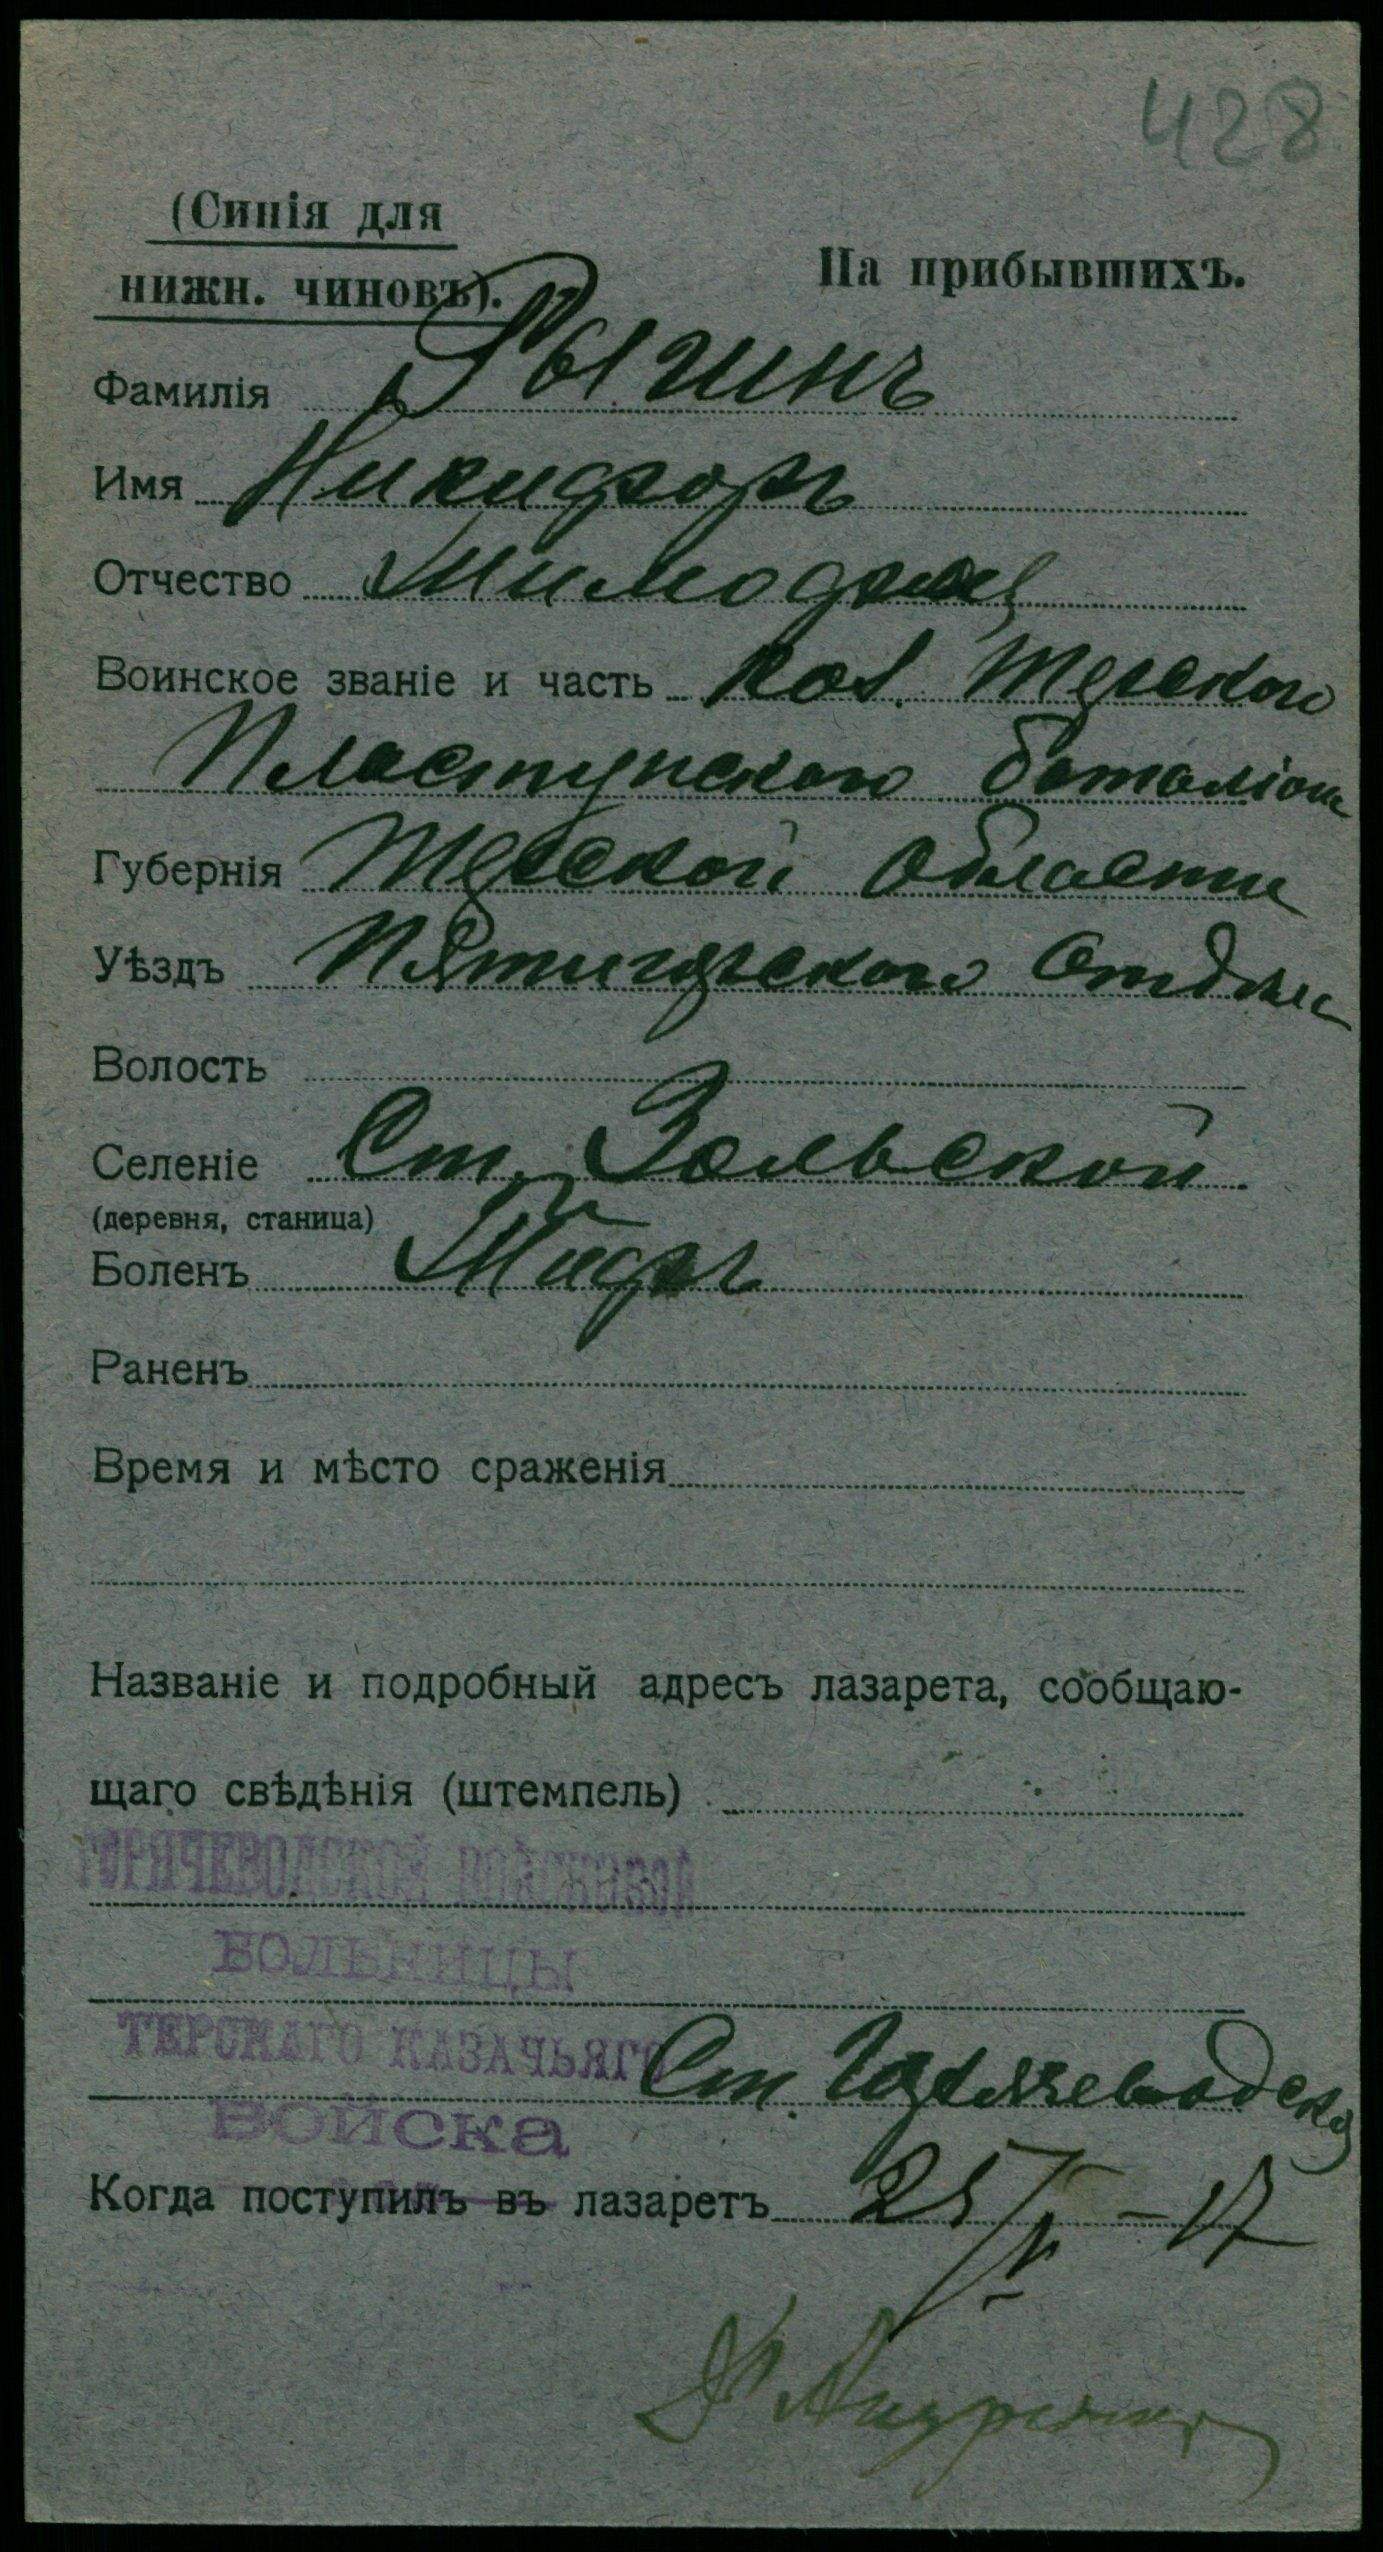 428
(Синія для
нижн. чиновъ).
На прибывшихъ.
Фамилія Рыгинъ
Имя Никифоръ
Отчество Тимофеев
Воинское званіе и часть Каз. Терского
Пластунского баталіона
Губернія Терской Области
Уѣздъ Пятигорского Отдѣла
Волость
Селеніе Ст. Зольской
(деревня, станица)
Боленъ Тифъ
Раненъ
Время и мѣсто сраженія
Названіе и подробный адресъ лазарета, сообщаю-
щаго свѣдѣнія (штемпель)
ГОРЯЧЕВОДСКОЙ ВОЙСКОВОЙ
БОЛЬНИЦЫ
ТЕРСКАГО КАЗАЧЬЯГО
ВОЙСКА
Ст. Горячеводск
Когда поступилъ въ лазаретъ 25/II - 17